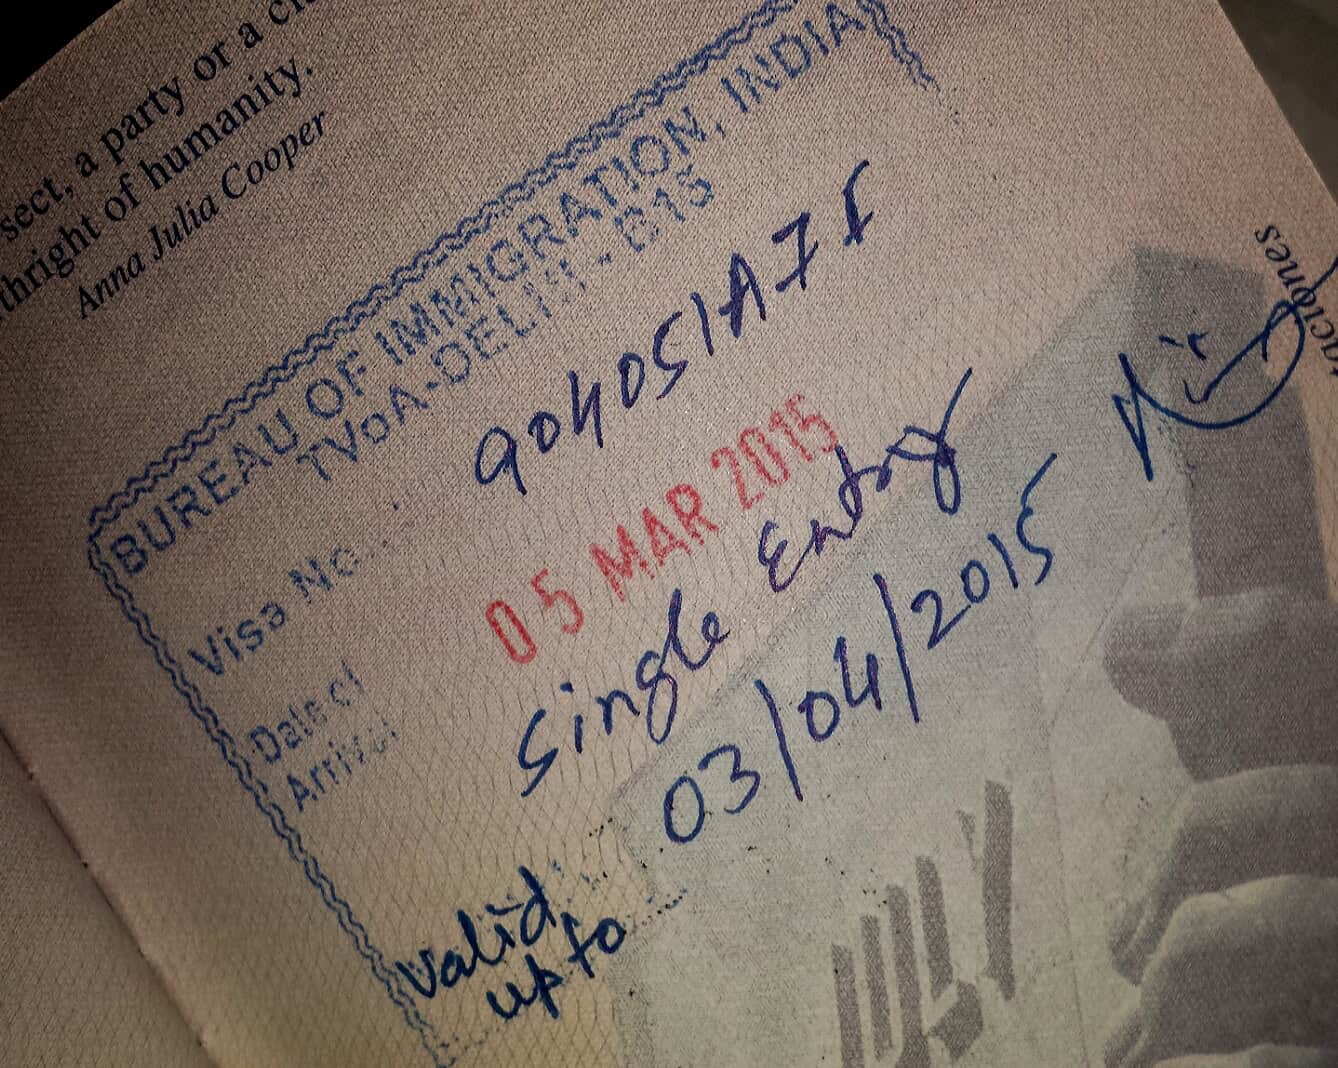 sect, a party or a
thright of humanity.
Anna Julia Cooper
BUREAU OF IMMIGRATION, INDIA
TVoA-DELHI - B15
Visa No.
Date of
Arrival
05 MAR 2015
Single Entry
valid
up to
03/04/2015
aciones